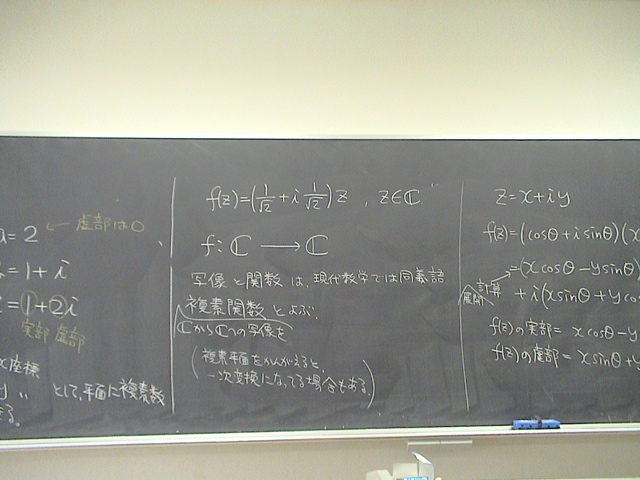 a = 2 ← 虚部は0
= 1 + i
= 1 + 2i
実部 虚部
x座標
y 〃 として、平面に複素数
きる。
f(z) = (1/√2 + i 1/√2) z , z∈ℂ
f : ℂ → ℂ
写像と関数は、現代数学では同義語
複素関数とよぶ.
ℂからℂへの写像を
(複素平面をかんがえると,
一次変換になってる場合もある.)
z = x + iy
f(z) = (cosθ + i sinθ)(x
= (x cosθ − y sinθ)
計算
展開
+ i(x sinθ + y co
f(z)の実部 = x cosθ − y
f(z)の虚部 = x sinθ + y